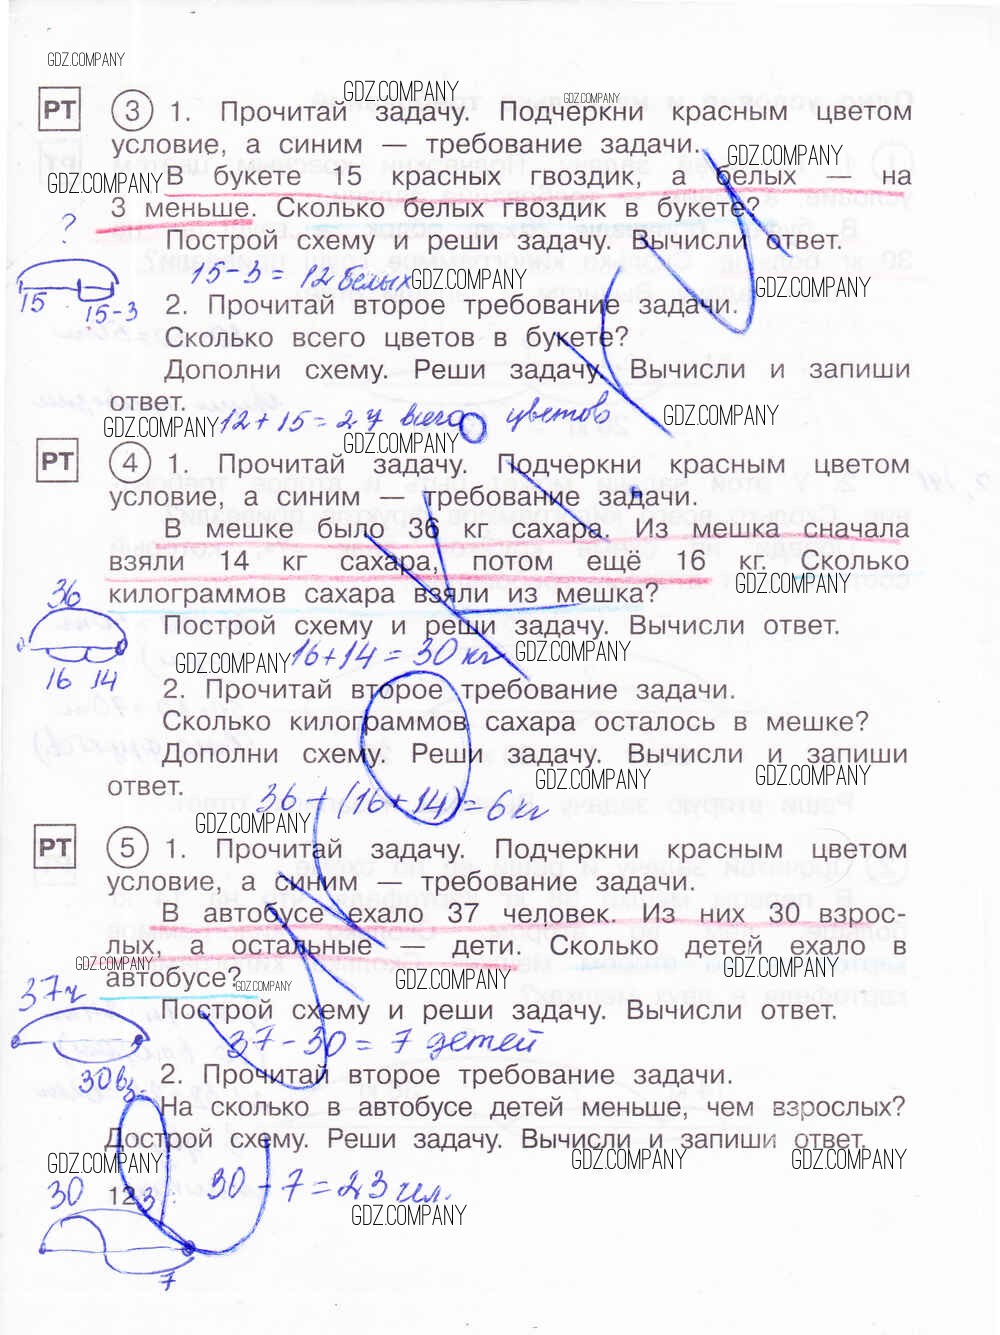 GDZ.COMPANY
РТ 3 1. Прочитай задачу. Подчеркни красным цветом
условие, а синим — требование задачи.
В букете 15 красных гвоздик, а белых — на
3 меньше. Сколько белых гвоздик в букете?
?
Построй схему и реши задачу. Вычисли ответ.
15-3 = 12 белых
15 15-3
2. Прочитай второе требование задачи.
Сколько всего цветов в букете?
Дополни схему. Реши задачу. Вычисли и запиши
ответ.
12+15=27 всего цветов
РТ 4 1. Прочитай задачу. Подчеркни красным цветом
условие, а синим — требование задачи.
В мешке было 36 кг сахара. Из мешка сначала
взяли 14 кг сахара, потом ещё 16 кг. Сколько
килограммов сахара взяли из мешка?
36
Построй схему и реши задачу. Вычисли ответ.
16+14=30 кг
16 14
2. Прочитай второе требование задачи.
Сколько килограммов сахара осталось в мешке?
Дополни схему. Реши задачу. Вычисли и запиши
ответ.
36-(16+14)=6 кг
РТ 5 1. Прочитай задачу. Подчеркни красным цветом
условие, а синим — требование задачи.
В автобусе ехало 37 человек. Из них 30 взрос-
лых, а остальные — дети. Сколько детей ехало в
автобусе?
37ч
Построй схему и реши задачу. Вычисли ответ.
37-30= 7 детей
30вз.
2. Прочитай второе требование задачи.
На сколько в автобусе детей меньше, чем взрослых?
Дострой схему. Реши задачу. Вычисли и запиши ответ.
30 123 30-7=23 чел.
7